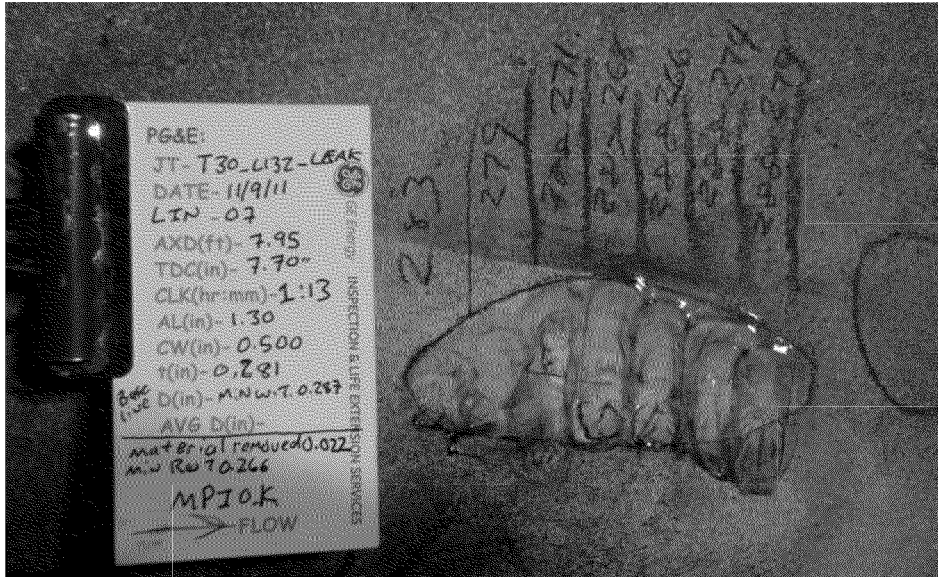 PG&E:
JT- T30_L132-LEAK
DATE- 11/9/11
LIN - 07
AXD(ft)- 7.95
TDC(in)- 7.70"
CLK(hr:mm)- 1:13
AL(in)- 1.30
CW(in)- 0.500
t(in)- 0.281
Base line D(in)- M.N.W.T. 0.287
AVG D(in)-
material removed 0.022
min RWT 0.266
MPI O.K
FLOW
GE Energy INSPECTION & LIFE EXTENSION SERVICES
.283
279
271
268
266
274
279